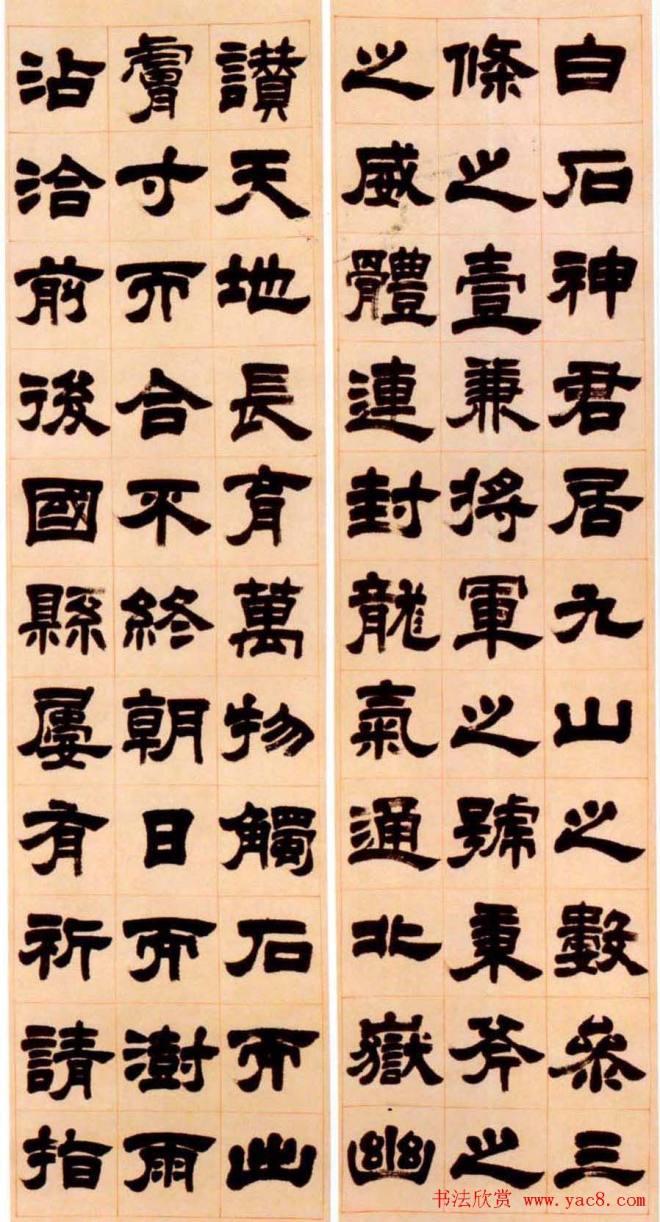 白石神君居九山之數參三
條之壹兼將軍之號秉斧之
之威體連封龍氣通北嶽幽
讃天地長育萬物觸石而出
膚寸而合不終朝日而澍雨
沾洽前後國縣屢有祈請指
书法欣赏 www.yac8.com